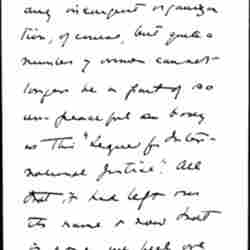 any insurgent organiza-
tion, of course, but quite a
number of women cannot
longer be a part of so
un-peaceful a body
as this "League for Inter-
national Justice". All
that it had left was
its name & now that
is gone we feel